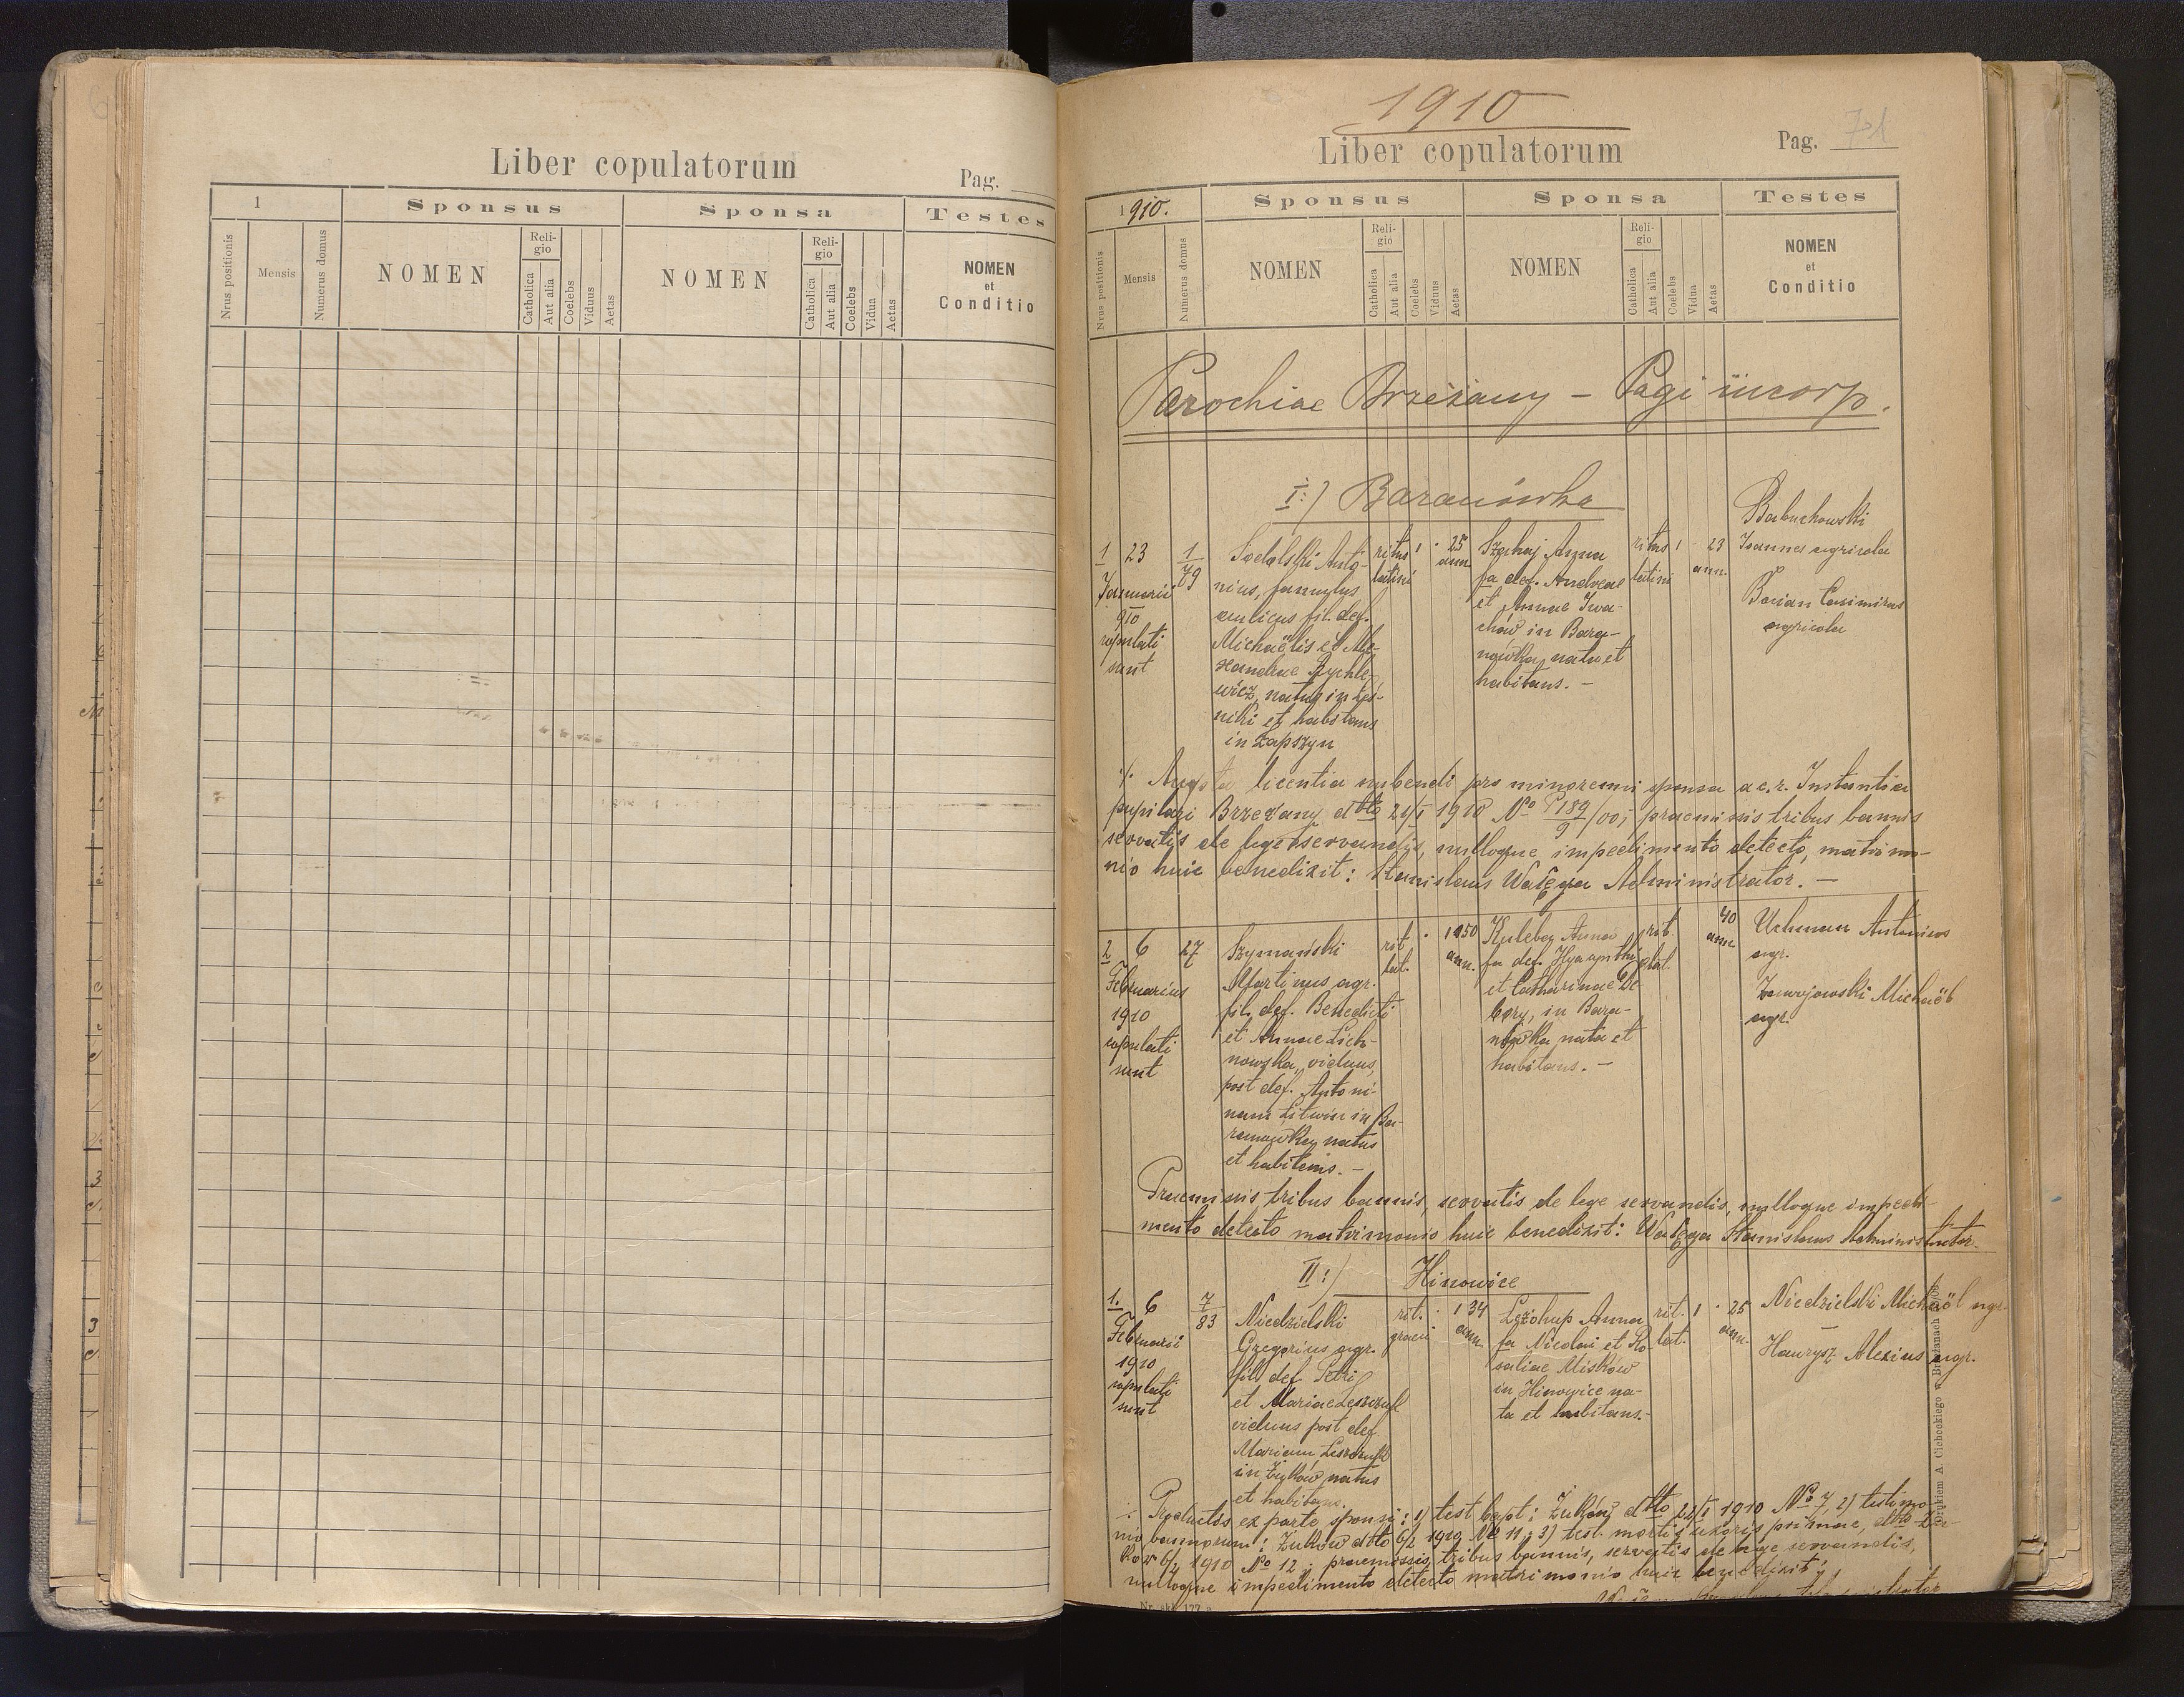 Liber copulatorum
Pag.
1
Sponsus
Sponsa
Testes
Nrus positionis
Mensis
Numerus domus
NOMEN
Religio
Catholica
Aut alia
Coelebs
Viduus
Aetas
NOMEN
Religio
Catholica
Aut alia
Coelebs
Vidua
Aetas
NOMEN
et
Conditio
1910
Liber copulatorum
Pag. 71
1910.
Sponsus
Sponsa
Testes
Nrus positionis
Mensis
Numerus domus
NOMEN
Religio
Catholica
Aut alia
Coelebs
Viduus
Aetas
NOMEN
Religio
Catholica
Aut alia
Coelebs
Vidua
Aetas
NOMEN
et
Conditio
Parochiae Brzeżany – Pagi incorp.
I:) Baranówka
1
23
Januarii
910
copulati
sunt
1
79
Anto-
nius, famulus
aulicus fil. def.
Michaëlis et Ale-
xandrae Rychle-
wicz, natus in
et habitans
in Łapszyn
ritus
latini
1
25
ann.
Szahaj Anna
fa def. Andreae
et Annae Iwa-
chów in Bara-
nówka nata et
habitans. –
ritus
latini
1
23
ann.
Babuchowski
Joannes agricola
Casimirus
agricola
licentia nubendi pro minorenni sponsa a c. r. Instantia
pupilari Brzeżany dtto 21/I 1910 No P 189/9 /00; praemissis tribus bannis
servatis de lege servandis, nulloque impedimento detecto, matrimo-
nio huic benedixit: Stanislaus Wałęga Administrator. –
2
6
Februarius
1910
copulati
sunt
27
Szymański
Martinus agr.
fil. def. Benedicti
et Annae Lich-
nowska, viduus,
post def. Antoni-
nam Litwin in Ba-
ranówka natus
et habitans. –
rit.
lat.
1
50
ann.
Anna
fa def. Hyacynthi
et Catharinae De-
bery, in Bara-
nówka nata et
habitans. –
rit
lat.
40
ann.
Uchman Antonius
agr.
Michaël
agr.
Praemissis tribus bannis, servatis de lege servandis, nulloque impedi-
mento detecto matrimonio huic benedixit: Wałęga Stanislaus Administrator.
II:) Hinowice
1.
6
Februarii
1910
copulati
sunt
7
83
Niedzielski
Gregorius agr.
fil. def. Petri
et Mariae Leszczuk
viduus post def.
Mariam Leszczuk
in Żuków natus
et habitans.
rit.
graeci
1
34
ann.
Anna
fa Nicolai et Ro-
saliae Miśków
in Hinowice na-
ta et habitans. –
rit.
lat.
1
25
ann.
Niedzielski Michaël agr.
Hawrysz Alexius agr.
Productis ex parte sponsi: 1) test. bapt: Żuków dtto 22/I 1910 No 7, 2) testimo-
nio bannorum: Żuków dtto 6/2 1910 No 11; 3) test. mortis uxoris primae, dtto Żu-
ków 6/2 1910 No 12; praemissis tribus bannis, servatis de lege servandis,
nulloque impedimento detecto matrimonio huic benedixit:
Drukiem A Cichockiego w Brzeżanach